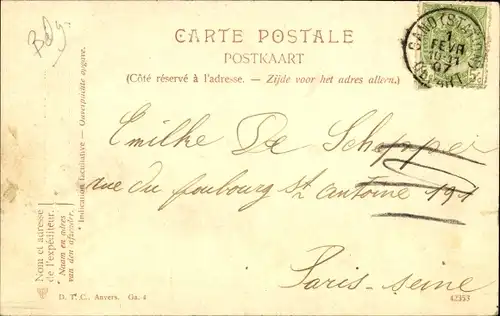 Belg.
CARTE POSTALE
POSTKAART
(Côté réservé à l'adresse. — Zijde voor het adres alleen.)
GAND (STATION)
1
FEVR
10-11
07
DEPART
Emilke De Schepper
rue du foubourg St antoine 191
Paris-seine
Nom et adresse
de l'expéditeur.
* Naam en adres
van den afzender.
* Indication facultative — Onverplichte opgave.
D. T. C., Anvers. Ga. 4
42353